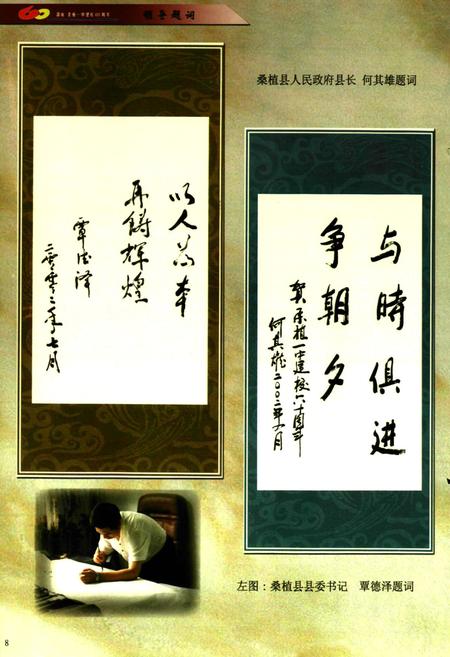 领导题词
桑植县人民政府县长 何其雄题词
以人为本
再铸辉煌
覃德泽
二零零二年七月
与時俱进
争朝夕
贺桑植一中建校六十周年
何其雄二00二年六月
左图：桑植县县委书记 覃德泽题词
8